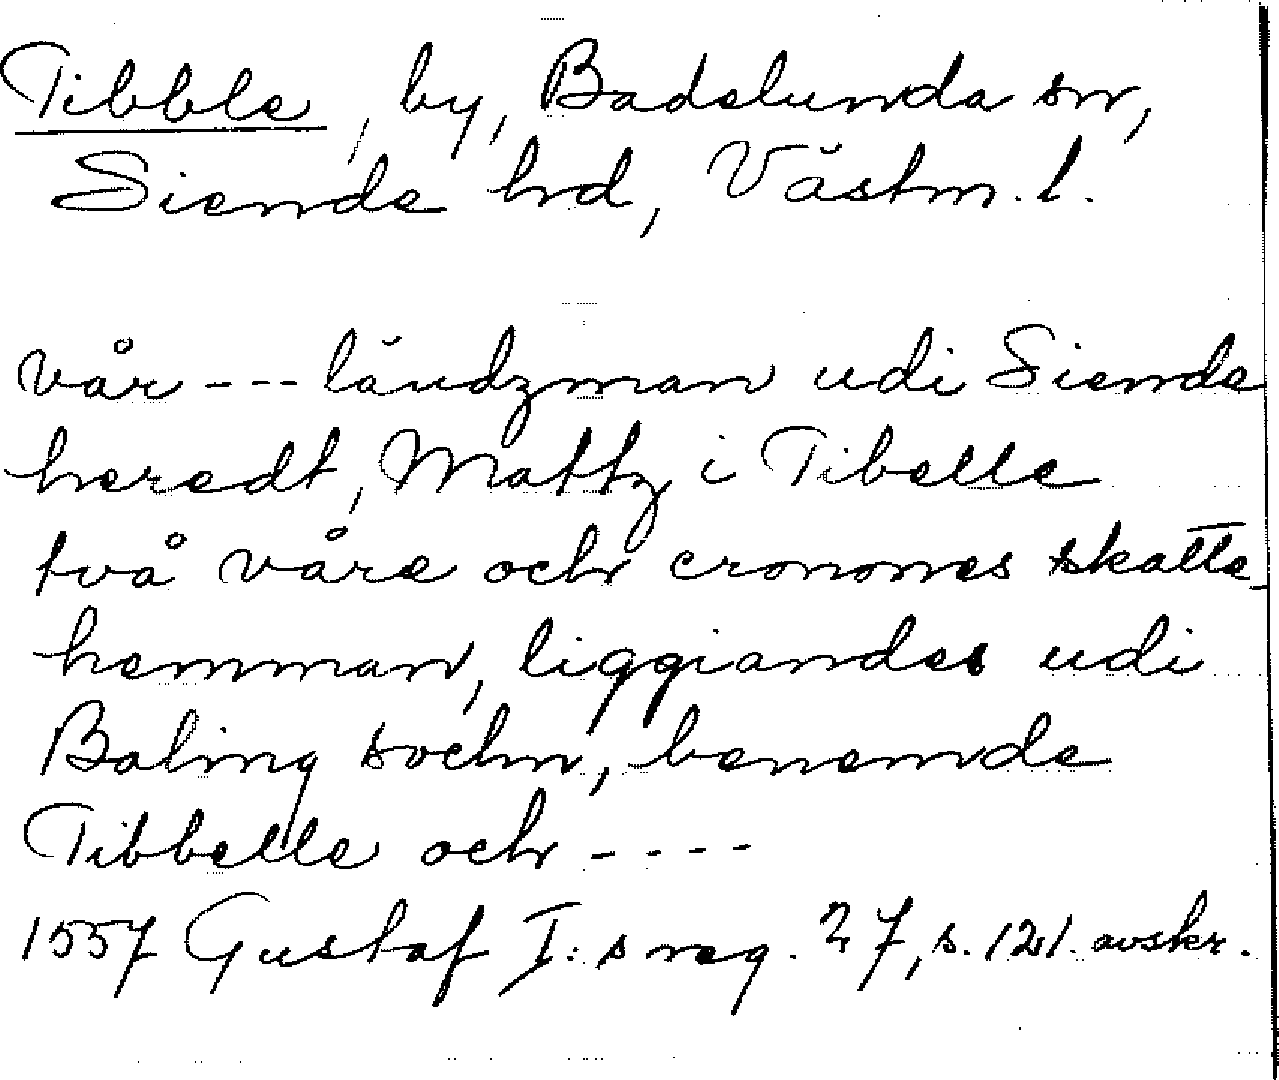 Tibble, by, Badelunda sn,
Siende hd, Västm. l.
vår --- ländzman udi Siende
heredt, Mattz i Tibelle
två våre och cronones skatte-
hemman, liggiandes udi
Baling sochn, benemde
Tibbelle och ----
1557 Gustaf I:s reg. 27, s. 121. avskr.